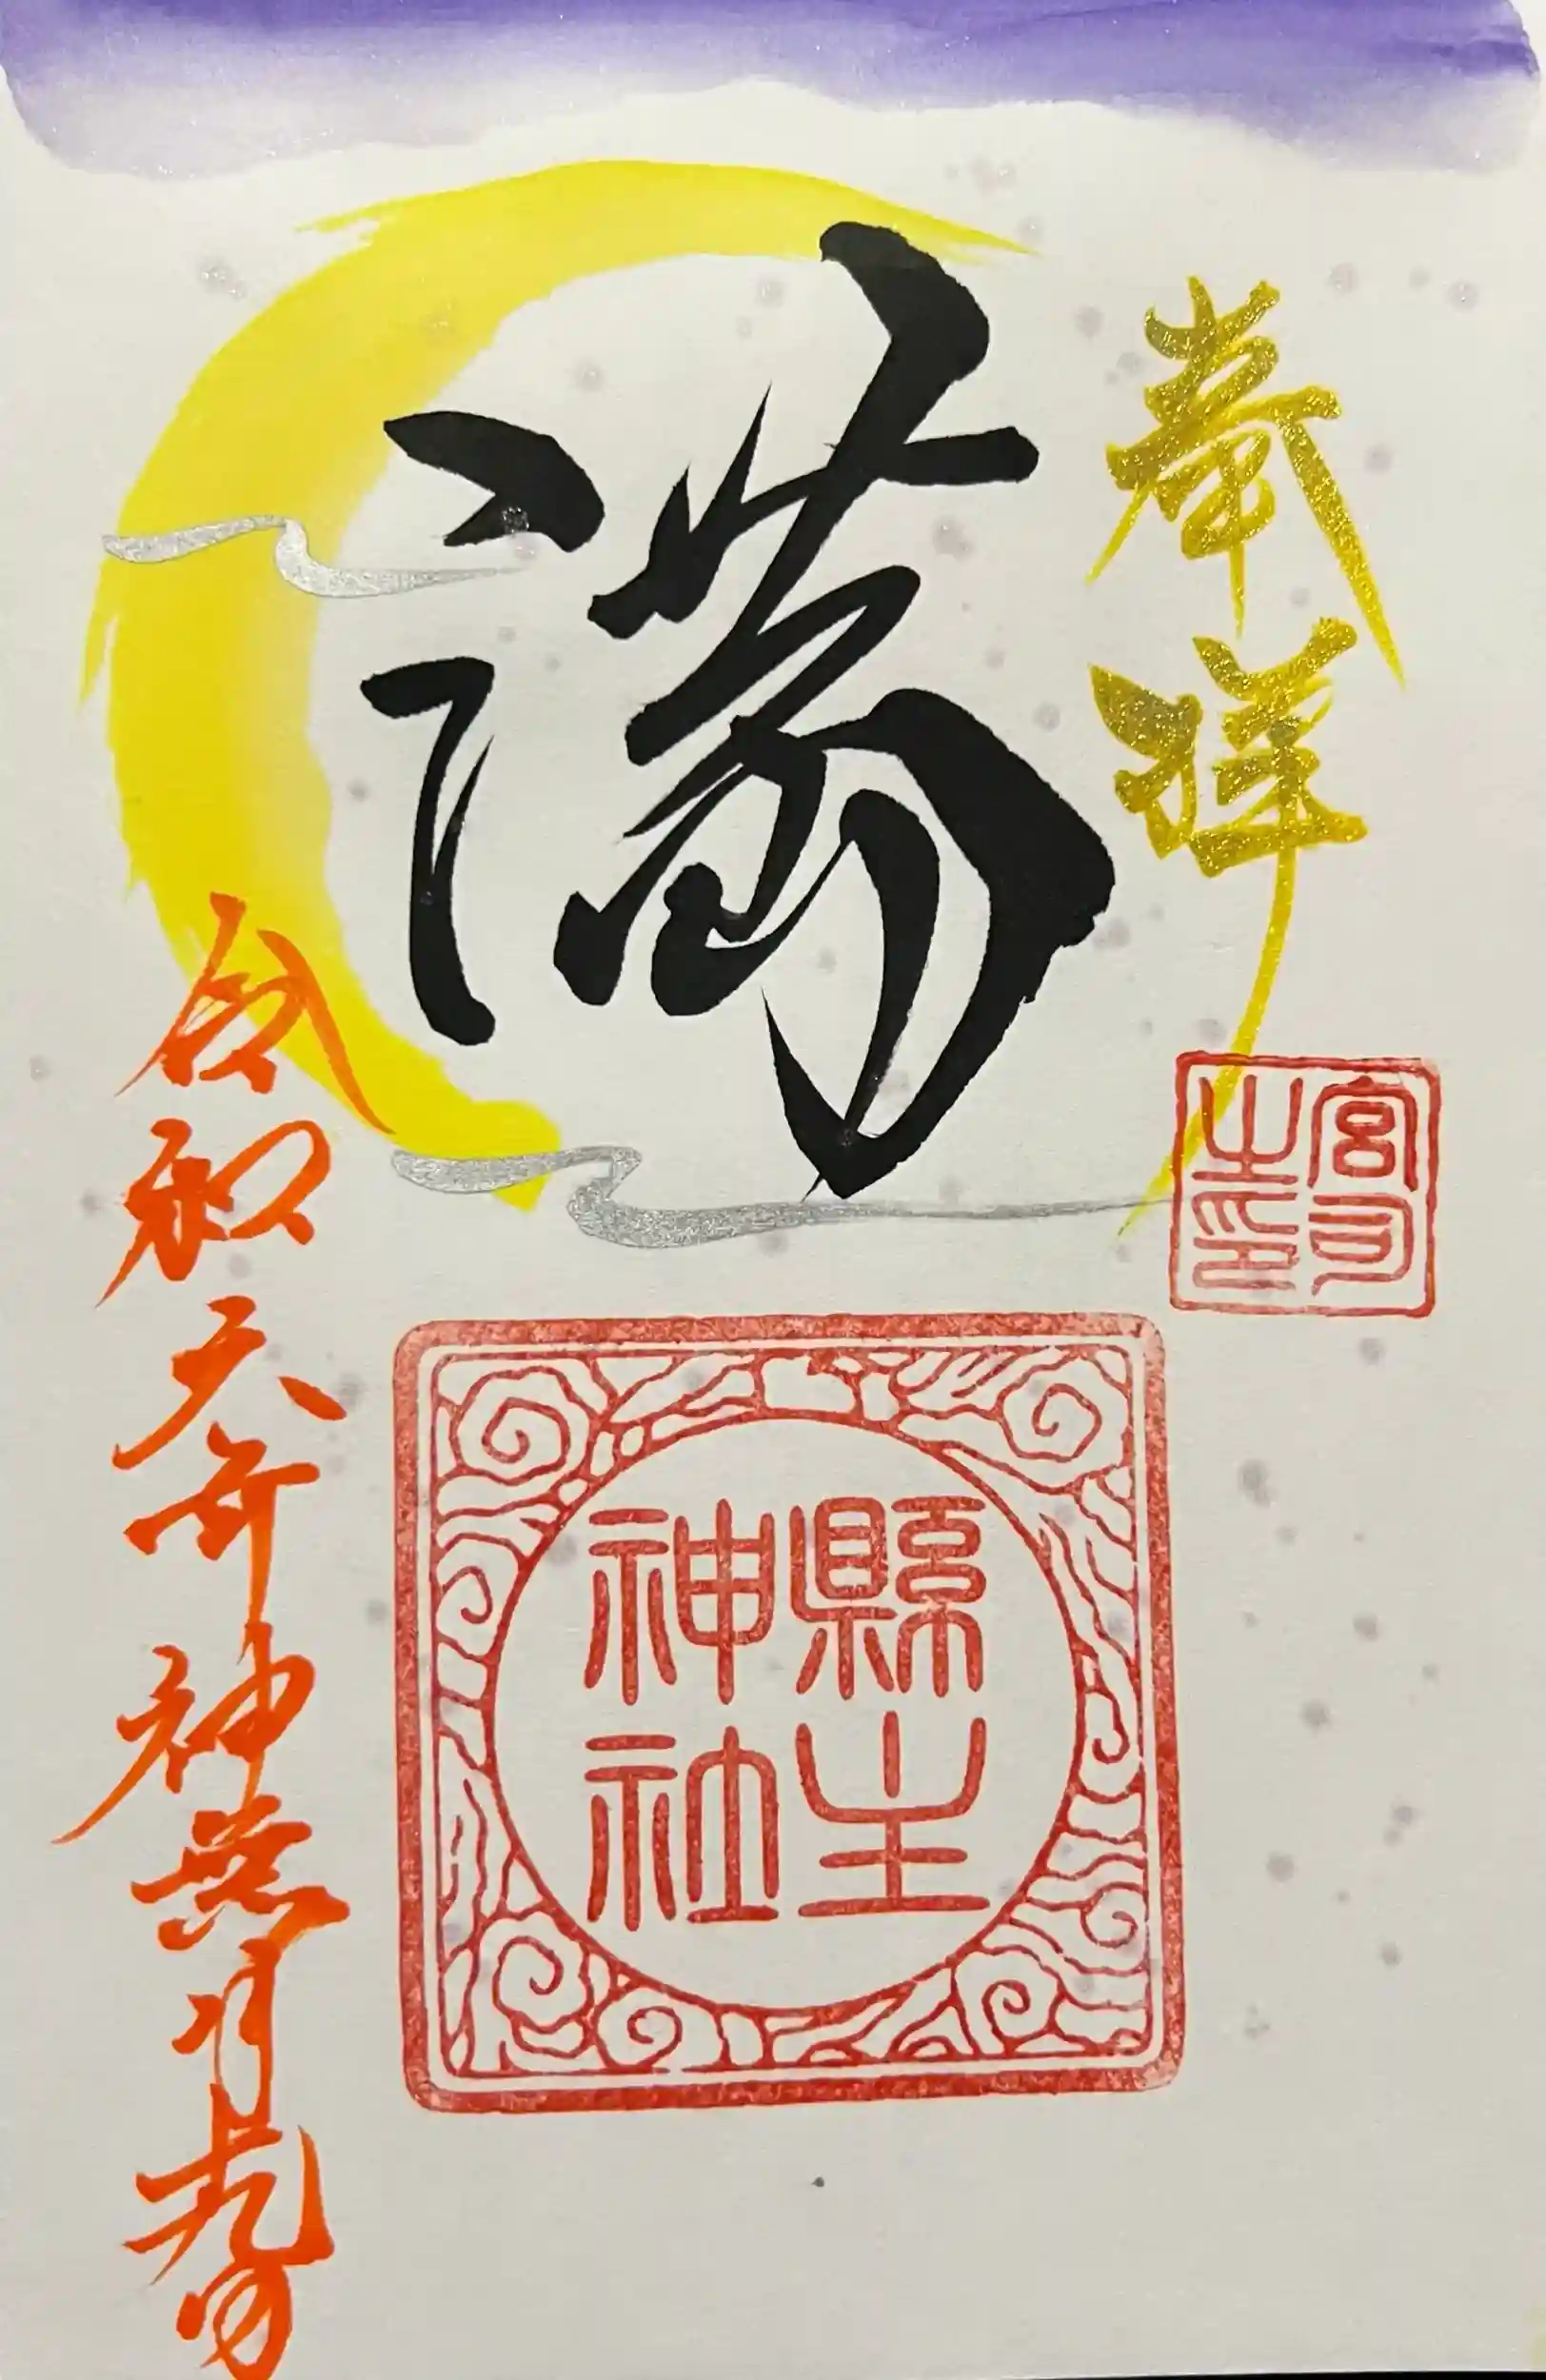 奉拝
宮司
之印
満
縣主
神社
令和六年神無月十九日